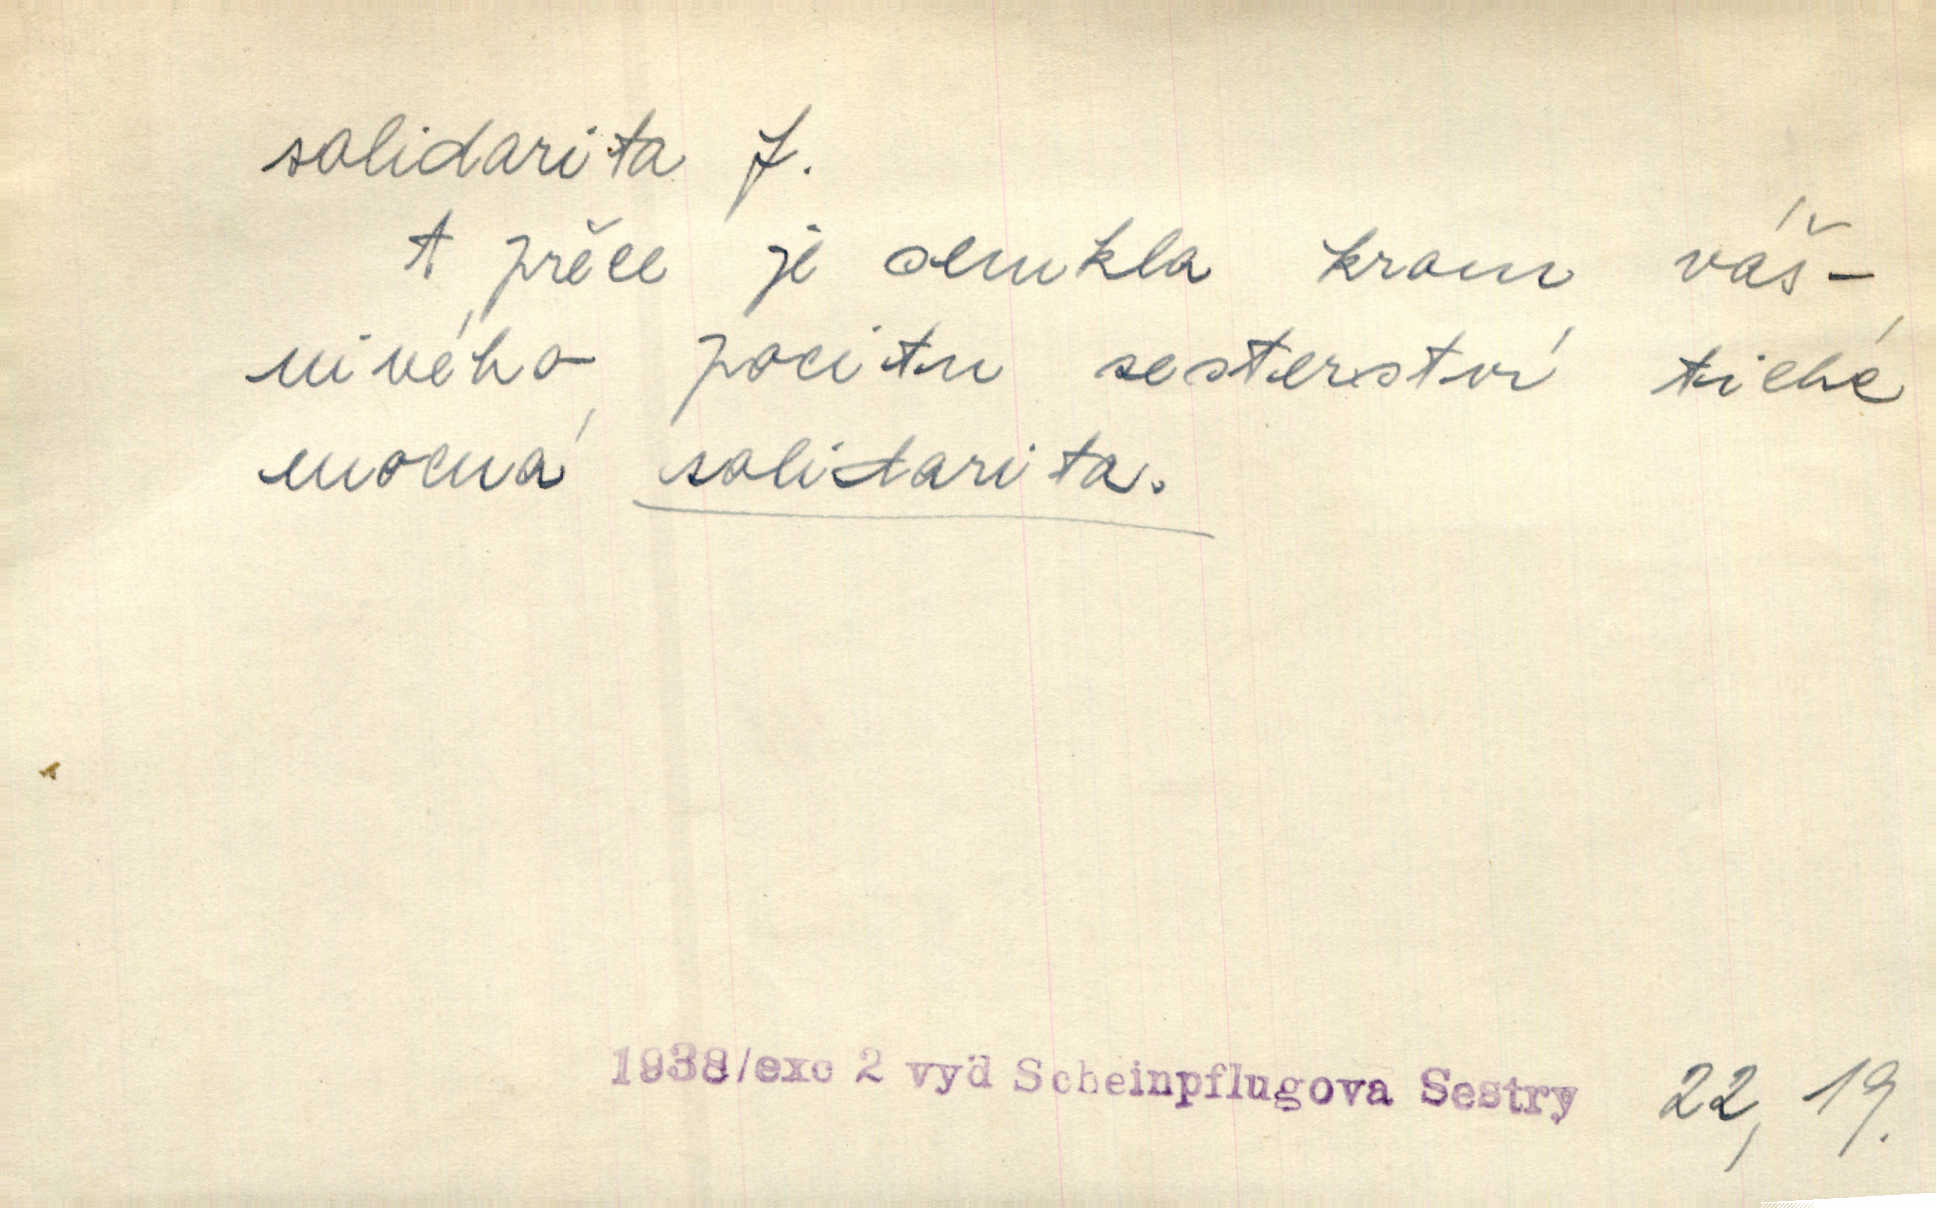 solidarita f.
A přece je semkla krom váš-
nivého pocitu sesterství tiché
mocná solidarita.
1938/exc 2 vyd Scheinpflugova Sestry 22, 19.